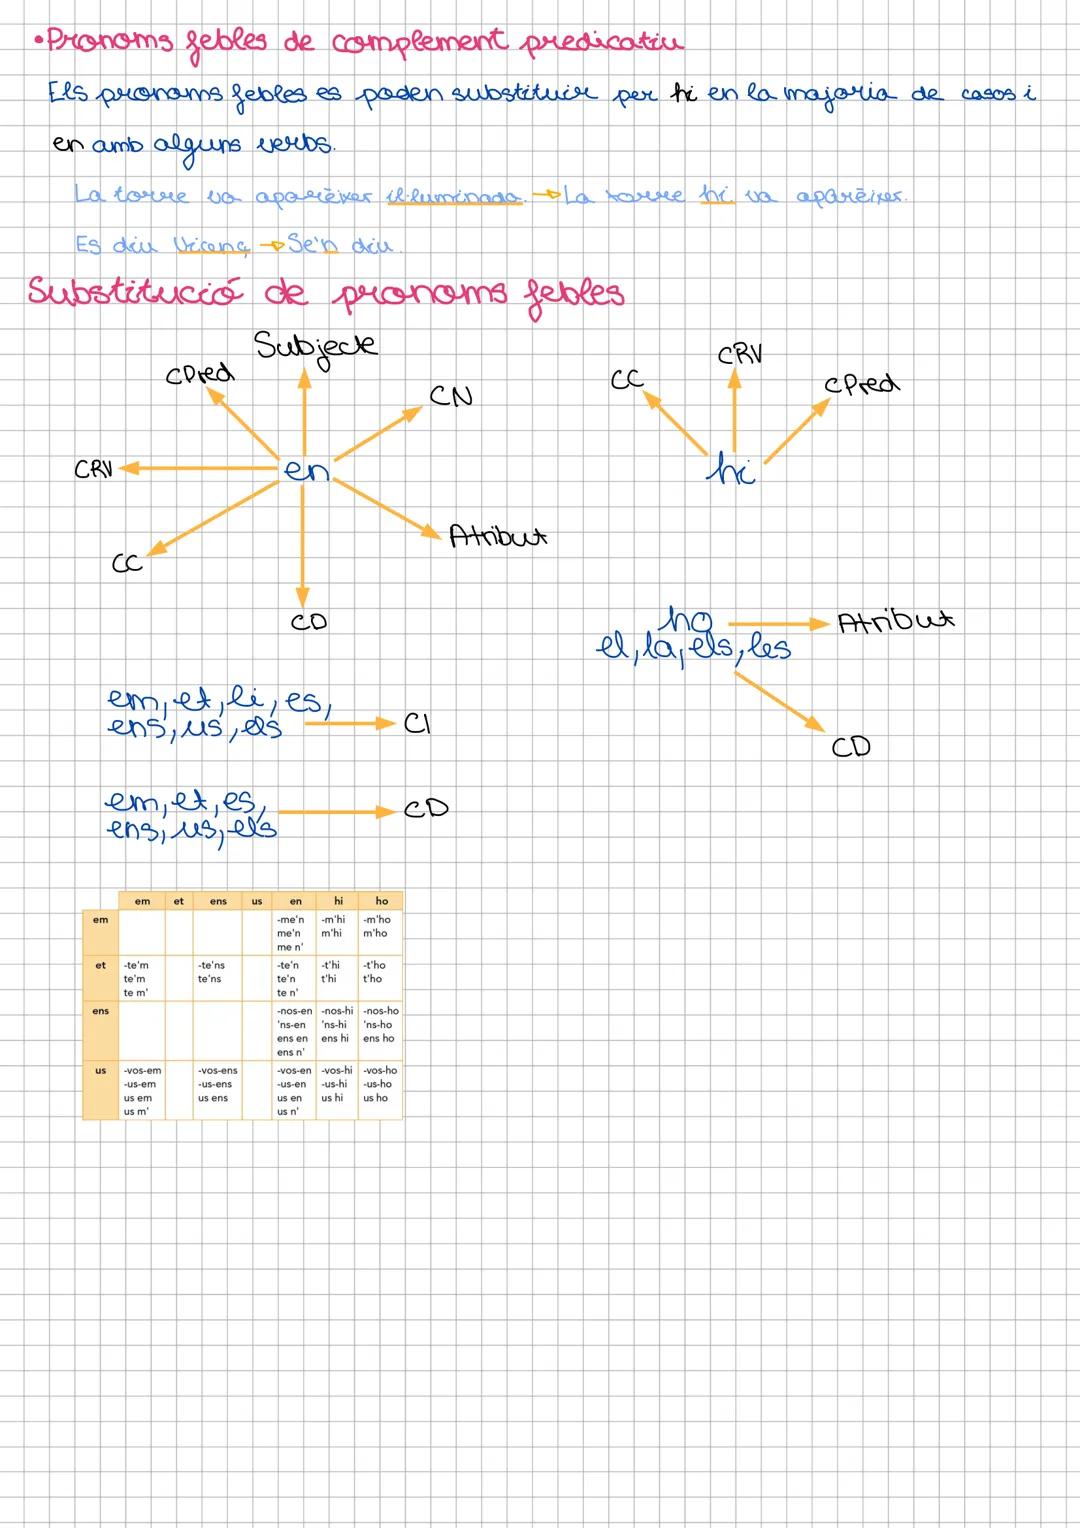 •Pronoms febles de complement predicatiu
Els pronoms febles es poden substituir per hi en la majoria de casos i
en amb alguns verbs.
La torre va aparèixer il·luminada. → La torre hi va aparèixer.
Es diu Vicenç → Se'n diu.
Substitució de pronoms febles
Subjecte
CPred
CN
CRV
en
CC
Atribut
CD
CRV
CC
CPred
hi
ho → Atribut
el, la, els, les
CD
em, et, li, es,
ens, us, els → CI
em, et, es,
ens, us, els → CD
em et ens us en hi ho
em -me'n -m'hi -m'ho
me'n m'hi m'ho
me n'
et -te'm -te'ns -te'n -t'hi -t'ho
te'm te'ns te'n t'hi t'ho
te m' te n'
ens -nos-en -nos-hi -nos-ho
'ns-en 'ns-hi 'ns-ho
ens en ens hi ens ho
ens n'
us -vos-em -vos-ens -vos-en -vos-hi -vos-ho
-us-em -us-ens -us-en -us-hi -us-ho
us em us ens us en us hi us ho
us m' us n'